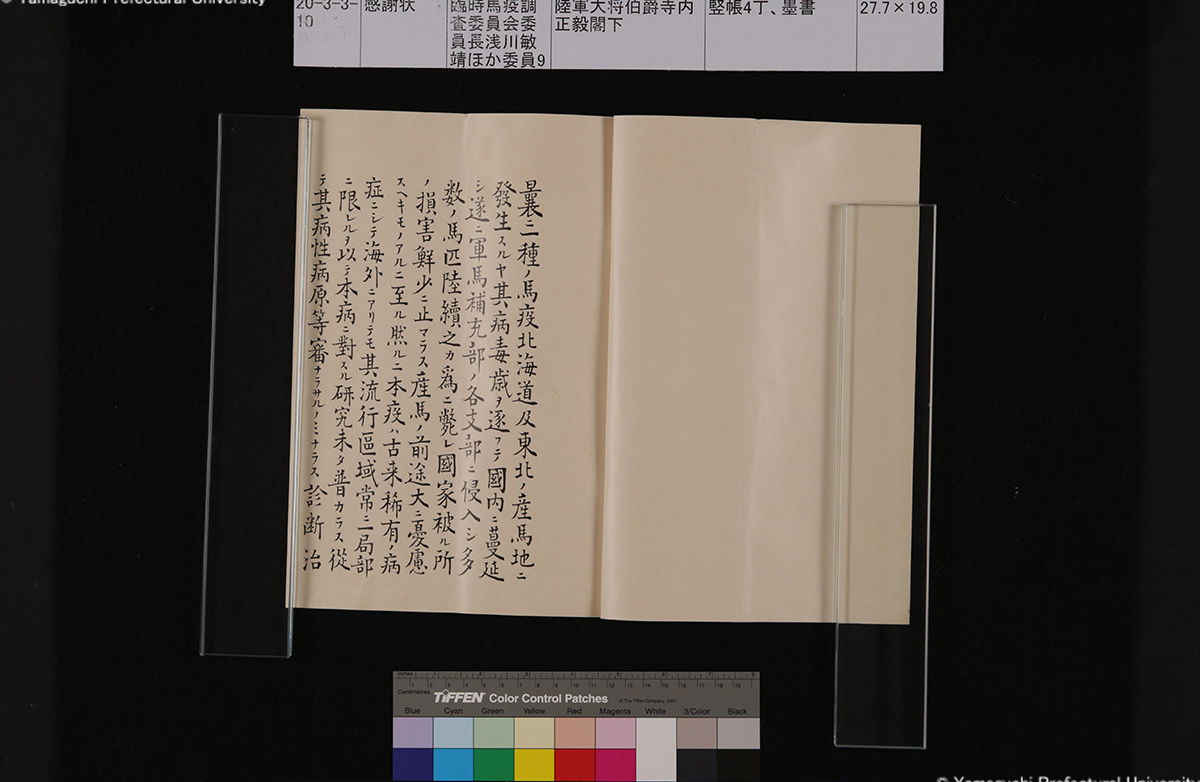 © Yamaguchi Prefectural University
20-3-3-
10
感謝状
臨時馬疫調
査委員会委
員長浅川敏
靖ほか委員9
陸軍大将伯爵寺内
正毅閣下
竪帳4丁、墨書
27.7×19.8
曩ニ二種ノ馬疫北海道及東北ノ産馬地ニ
發生スルヤ其病毒歳ヲ逐フテ國内ニ蔓延
シ遂ニ軍馬補充部ノ各支部ニ侵入シ多
数ノ馬匹陸續之カ爲ニ斃レ國家被ル所
ノ損害鮮少ニ止マラス産馬ノ前途大ニ憂慮
スヘキモノアルニ至ル然ルニ本疫ハ古来稀有ノ病
症ニシテ海外ニアリテモ其流行區域常ニ一局部
ニ限レルヲ以テ本病ニ對スル研究未タ普カラス從
テ其病性病原等審ナラサルノミナラス診断治
inches
Centimetres
TIFFEN Color Control Patches
© The Tiffen Company, 2007
Blue Cyan Green Yellow Red Magenta White 3/Color Black
© Yamaguchi Prefectural University